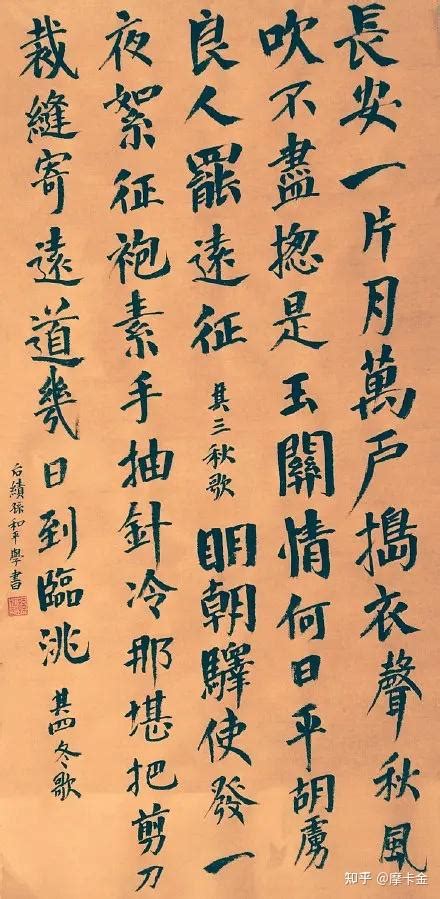 長安一片月萬戶搗衣聲秋風
吹不盡揔是玉關情何日平胡虜
良人罷遠征 其三秋歌 明朝驛使發一
夜絮征袍素手抽針冷那堪把剪刀
裁縫寄遠道幾日到臨洮 其四冬歌
右績孫和平學書
知乎 @摩卡金